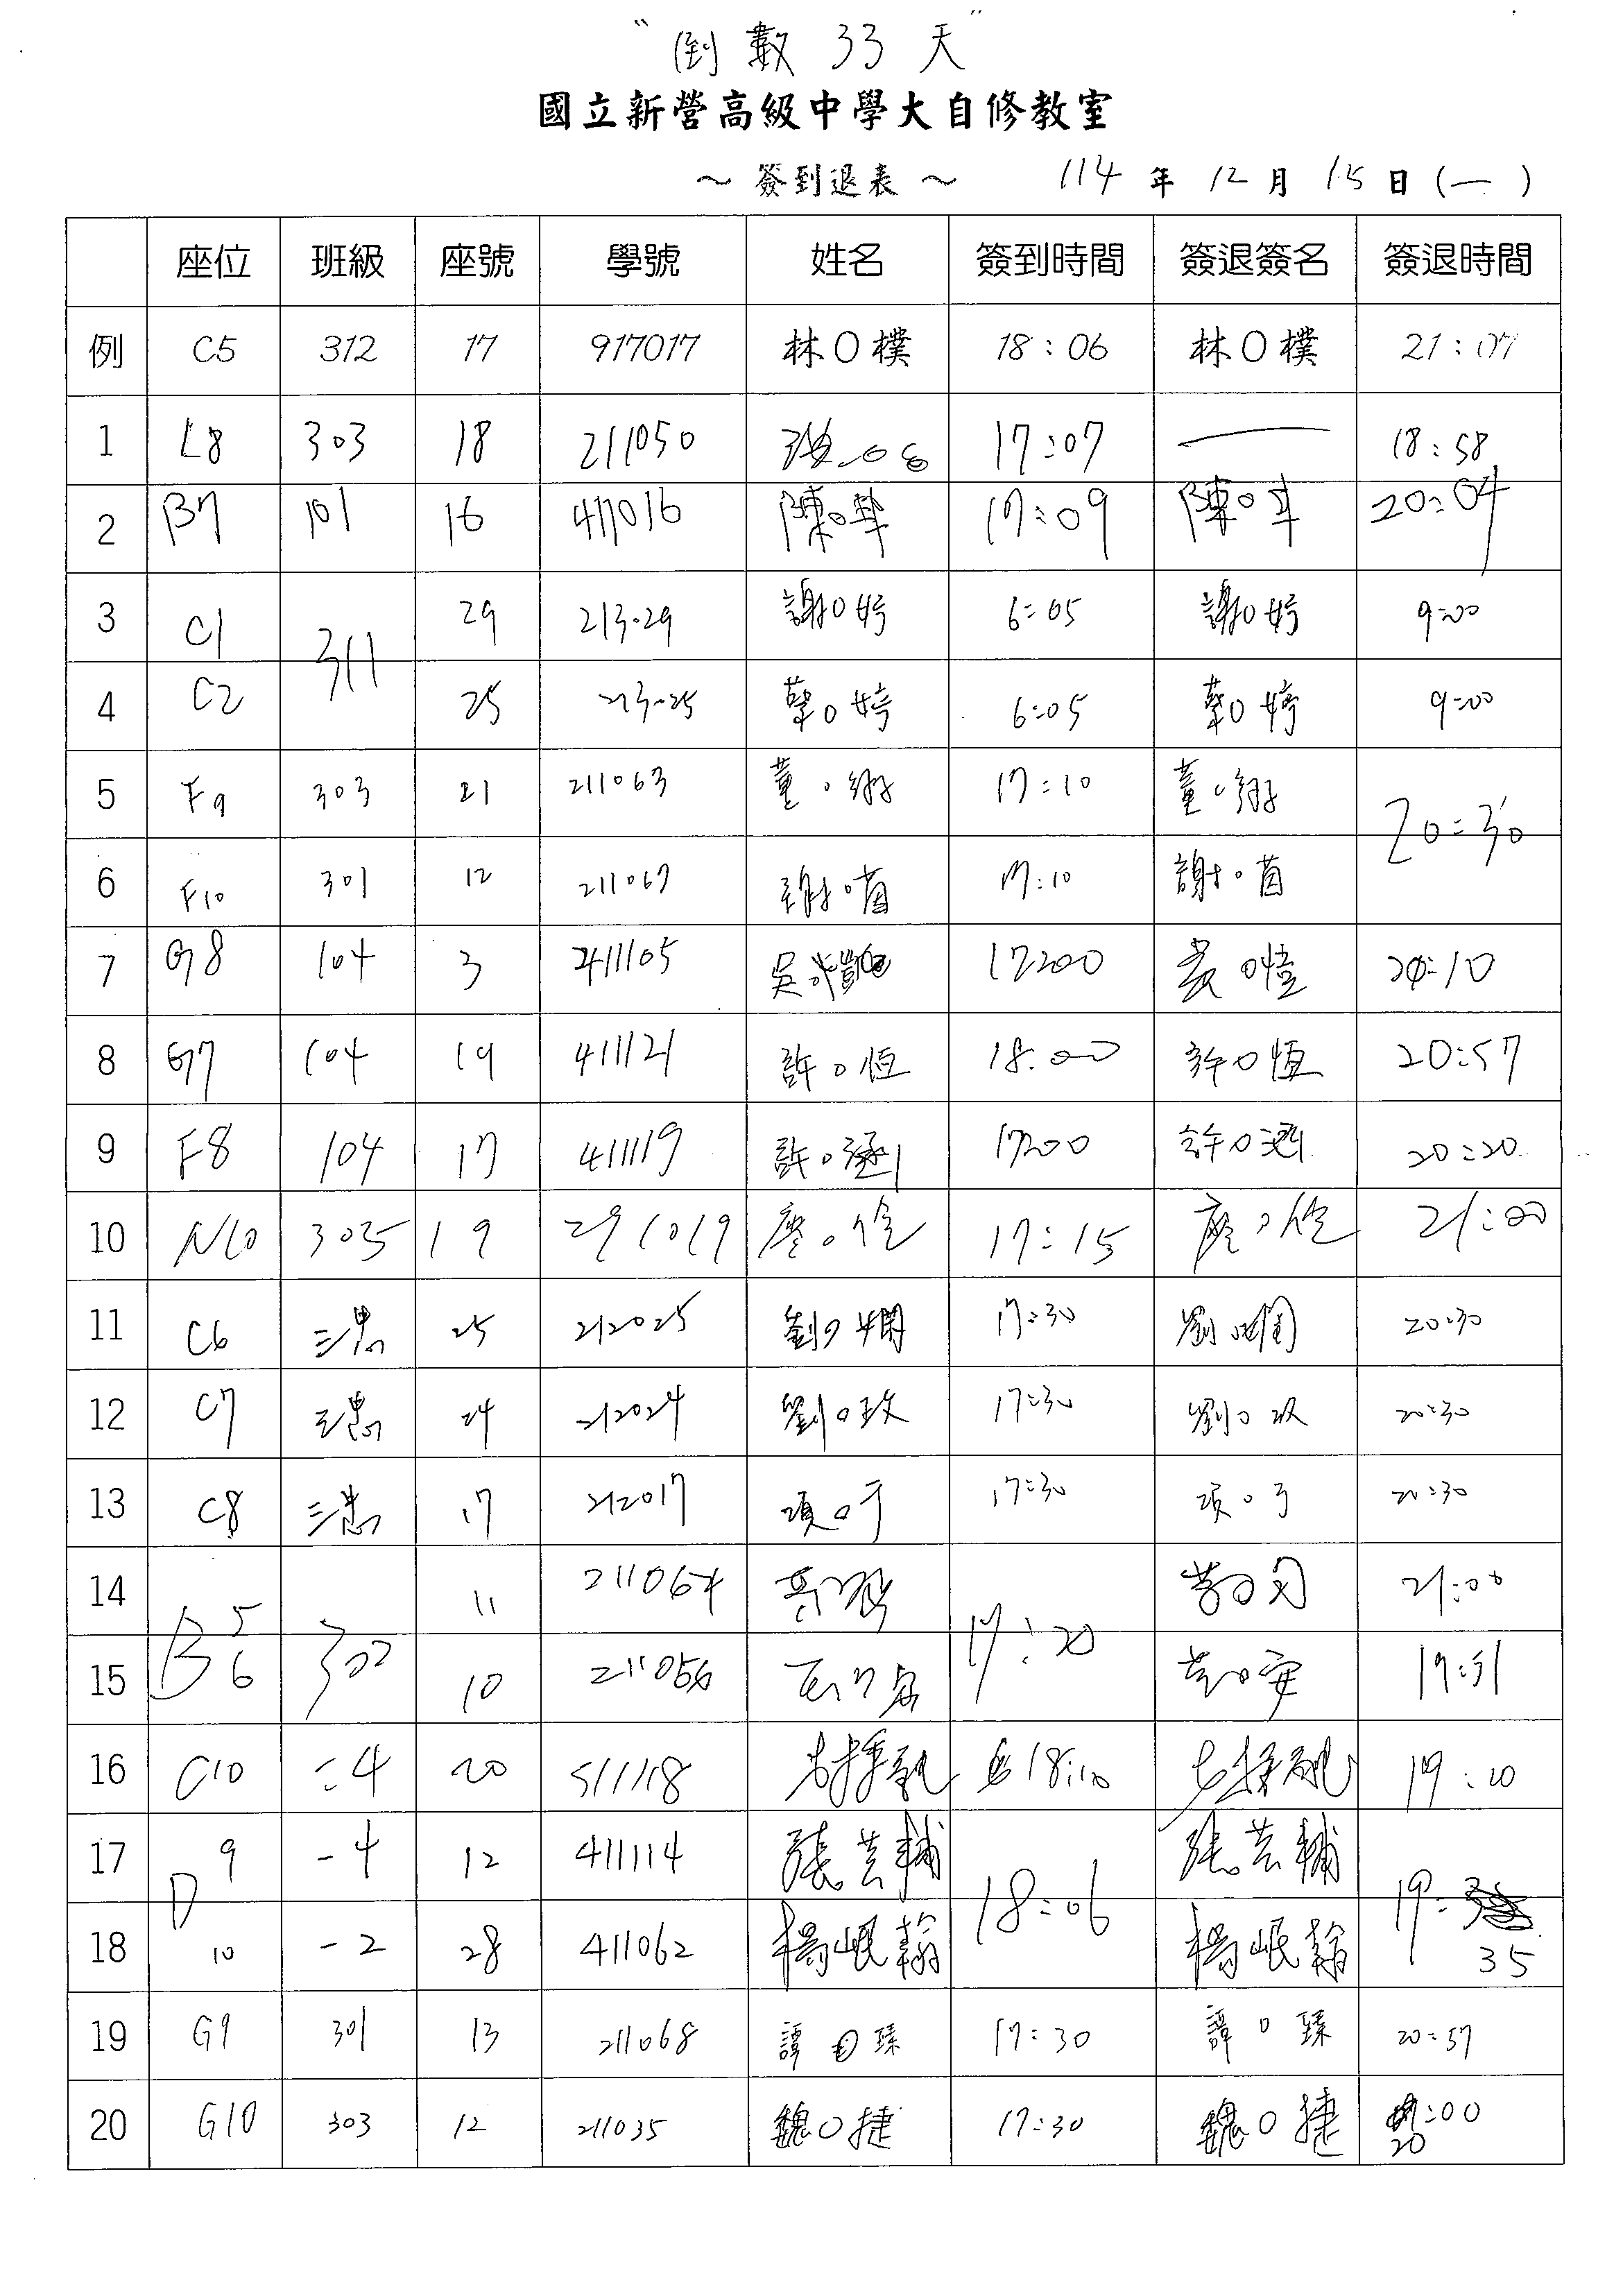 "倒數 33 天"
國立新營高級中學大自修教室
～ 簽到退表 ～ 114 年 12 月 15 日 (一)
座位 班級 座號 學號 姓名 簽到時間 簽退簽名 簽退時間
例 C5 312 17 917017 林O樸 18:06 林O樸 21:07
1 L8 303 18 211050 17:07 18:58
2 B7 101 16 411016 陳O 17:09 陳O 20:04
3 C1 311 29 213029 謝O婷 6:05 謝O婷 9:00
4 C2 25 213025 蔡O婷 6:05 蔡O婷 9:00
5 F9 303 21 211063 董O翎 17:10 董O翎 20:30
6 F10 301 12 211067 謝O茵 17:10 謝O茵
7 G8 104 3 411105 吳 17:00 20:10
8 G7 104 19 411121 許O恆 18:00 許O恆 20:57
9 F8 104 17 411119 許O 17:00 許O 20:20
10 N10 305 19 291019 廖O 17:15 廖O 21:00
11 C6 三忠 25 212025 劉O嫻 17:30 劉O嫻 20:30
12 C7 三忠 24 212024 劉O玫 17:30 劉O玫 20:30
13 C8 三忠 17 212017 項O于 17:30 項O于 20:30
14 B5 302 11 211064 17:20 21:00
15 6 10 19:51
16 C10 二4 20 511118 18:10 19:20
17 D 9 一4 12 411114 張芸輔 18:06 張芸輔 19:35
18 10 一2 28 411062 楊岷翰 楊岷翰
19 G9 301 13 211068 譚O臻 17:30 譚O臻 20:57
20 G10 303 12 211035 魏O捷 17:30 魏O捷 20:00